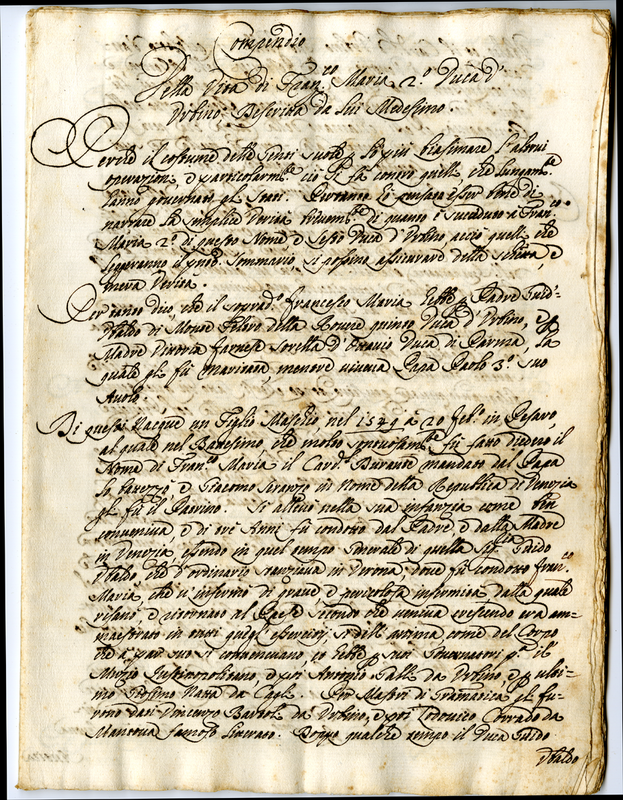 Compendio
Della Vita di Fran.co Maria 2.º Duca d'
Urbino Descritta da lui Medesimo.
il costume delle Genti suole lo più biasimare l'altrui
operazioni, e particolarm.te ciò si fà contro quelli, che lungam.te
anno governato gli Stati. Pertanto hò pensato esser bene di
narrare la semplice Verità brevem.te di quanto è succeduto à Fran.co
Maria 2.º di questo Nome e Sesto Duca d'Urbino, acciò quelli che
leggeranno il pres.te Sommario, si possino assicurare della schietta, e
mera Verità.
Per tanto dico, che il soprad.º Francesco Maria hebbe p Padre Guid'
Ubaldo di Monte Feltro della Rovere quinto Duca d'Urbino, e p
Madre Vittoria Farnese Sorella d'Ottavio Duca di Parma, la
quale gli fù Maritata, mentre viveva Papa Paolo 3.º suo
Avolo.
Di questi Nacque un Figlio Maschio nel 1549 à 20 Feb.º in Pesaro,
al quale nel Battesimo, che molto sontuosam.te fù fatto diedero il
Nome di Fran.co Maria il Card.l Durante mandato dal Papa
lo battezzò, e Giacomo Soranzo in Nome della Republica di Venezia
gli fù il Patrino. Si allevò nella sua infanzia come ben
conveniva, e di tre Anni fù condotto dal Padre e dalla Madre
in Venezia, essendo in quel tempo Generale di quella Sig.ria Guido
Ubaldo, che d'ordinario stanziava in Verona, dove fù condotto Fran.co
Maria, che s'infermò di grave, e pericolosa infermità, dalla quale
risanò, e ritornato al Paese secondo che veniva crescendo era am=
maestrato in tutti quegl'esercizij sì dell'animo, come del Corpo
che à par suo si convenivano, et hebbe p suoi Governatori p.ª il
Muzio Iustinopolitano, e poi Antonio Galli da Urbino, e p ulti=
mo Girolamo da Cagli. Per Mastri di Gramatica gli fu=
rono dati Vincenzo Bartoli da Urbino, e poi Lodovico Corrado da
Mantova famoso Letterato. Doppo qualche tempo il Duca Guido
Ubaldo